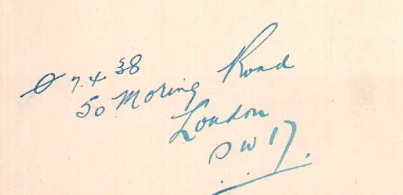 7.4 38
50 Moring Road
London
SW17.